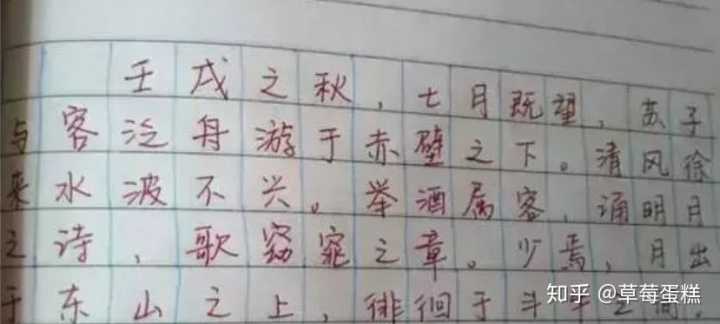 壬戌之秋,七月既望,苏子
与客泛舟游于赤壁之下。清风徐
来水波不兴。举酒属客,诵明月
之诗,歌窈窕之章。少焉,月出
于东山之上,徘徊于斗牛之间,
知乎 @草莓蛋糕